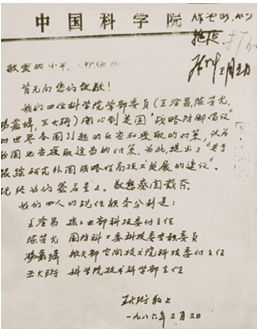 中国科学院
敬爱的小平
首先向您的致敬!
我们四位科学院学部委员(王淦昌、陈芳允、
杨嘉墀、王大珩)关心到美国"战略防御倡议"
对世界各国引起的反应和采取的对策,认为
我国也应采取适当的对策,为此,提出了"关于
跟踪研究外国战略性高技术发展的建议"。
现经我们签名呈上。敬恳察阅裁夺
我们四人的现任职务分别是:
王淦昌 核工业部科技委付主任
陈芳允 国防科工委科技委专职委员
杨嘉墀 航天部空间技术院科技委付主任
王大珩 科学院技术科学部主任
王大珩敬上
一九八六年三月三日